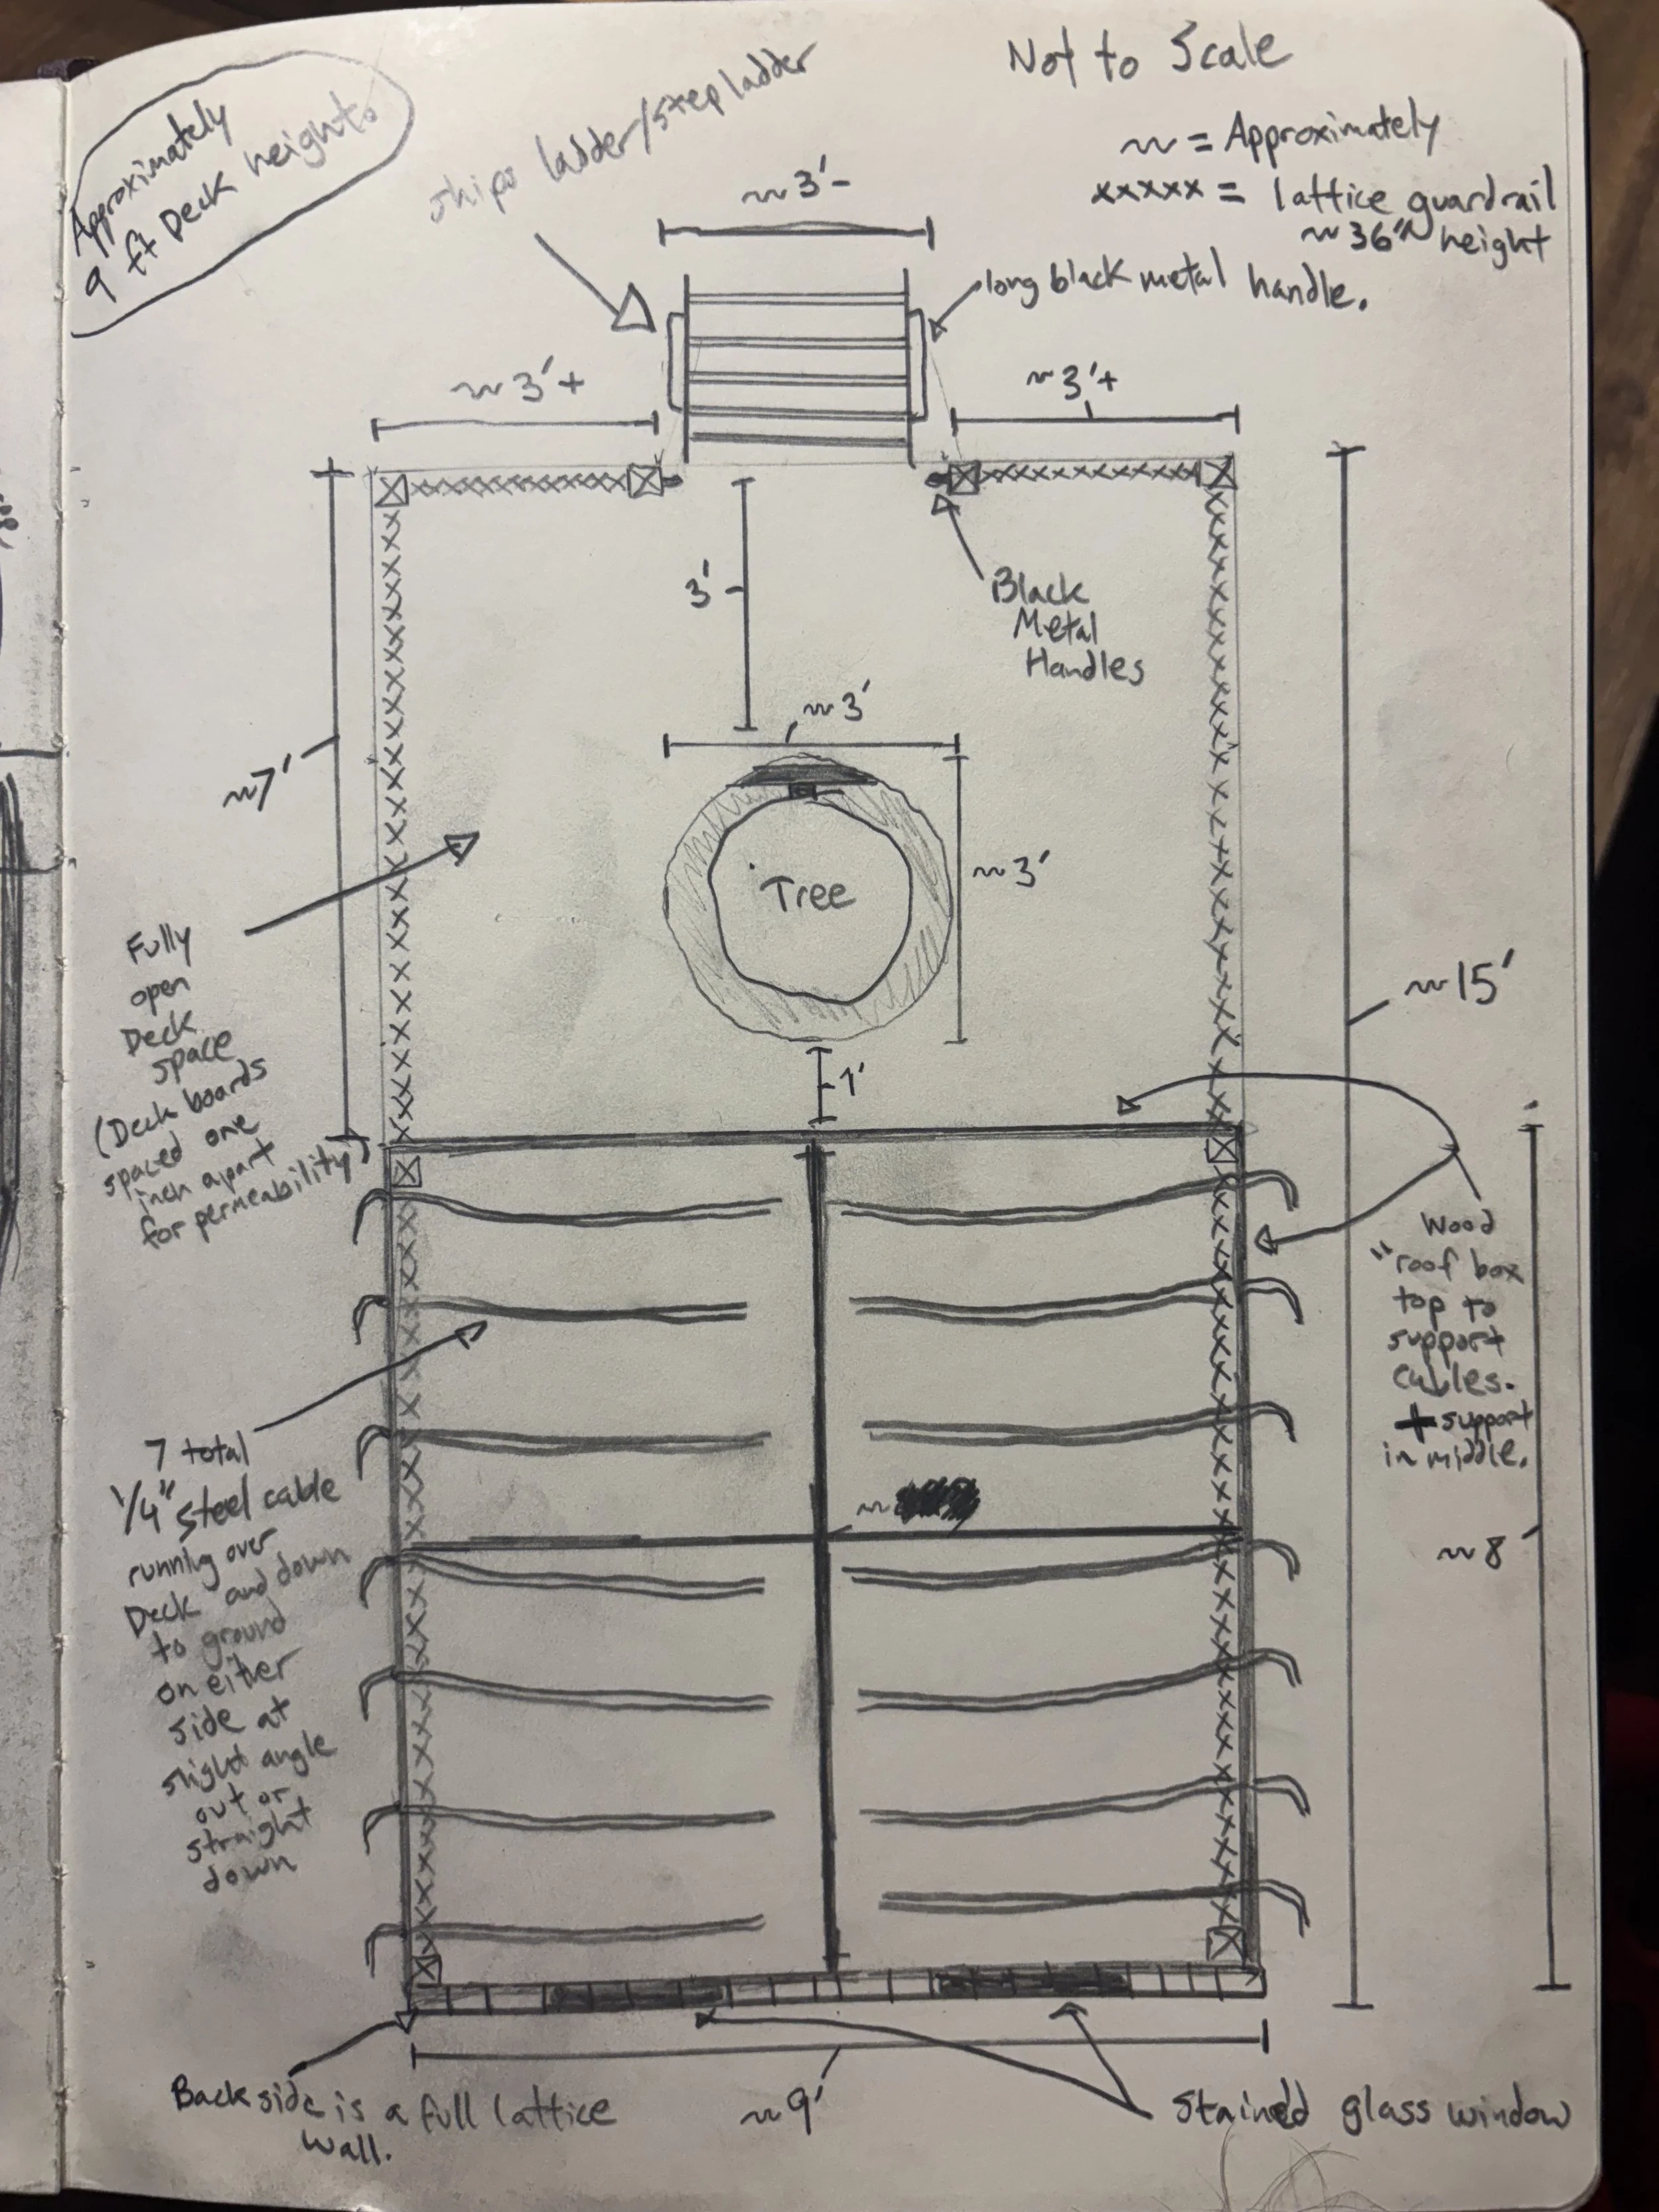 Approximately
9 ft Deck height.
ships ladder/step ladder
Not to Scale
~ = Approximately
xxxxx = lattice guardrail
~36" height
~3'-
long black metal handle.
~3'+
~3'+
3'
Black
Metal
Handles
~3'
~7'
Tree
~3'
Fully
open
Deck
space
(Deck boards
spaced one
inch apart
for permeability)
~15'
1'
Wood
"roof box
top to
support
cables.
+ support
in middle.
7 total
1/4" steel cable
running over
Deck and down
to ground
on either
side at
slight angle
out or
straight
down
~
~8
Back side is a full lattice
wall.
~9'
Stained glass window